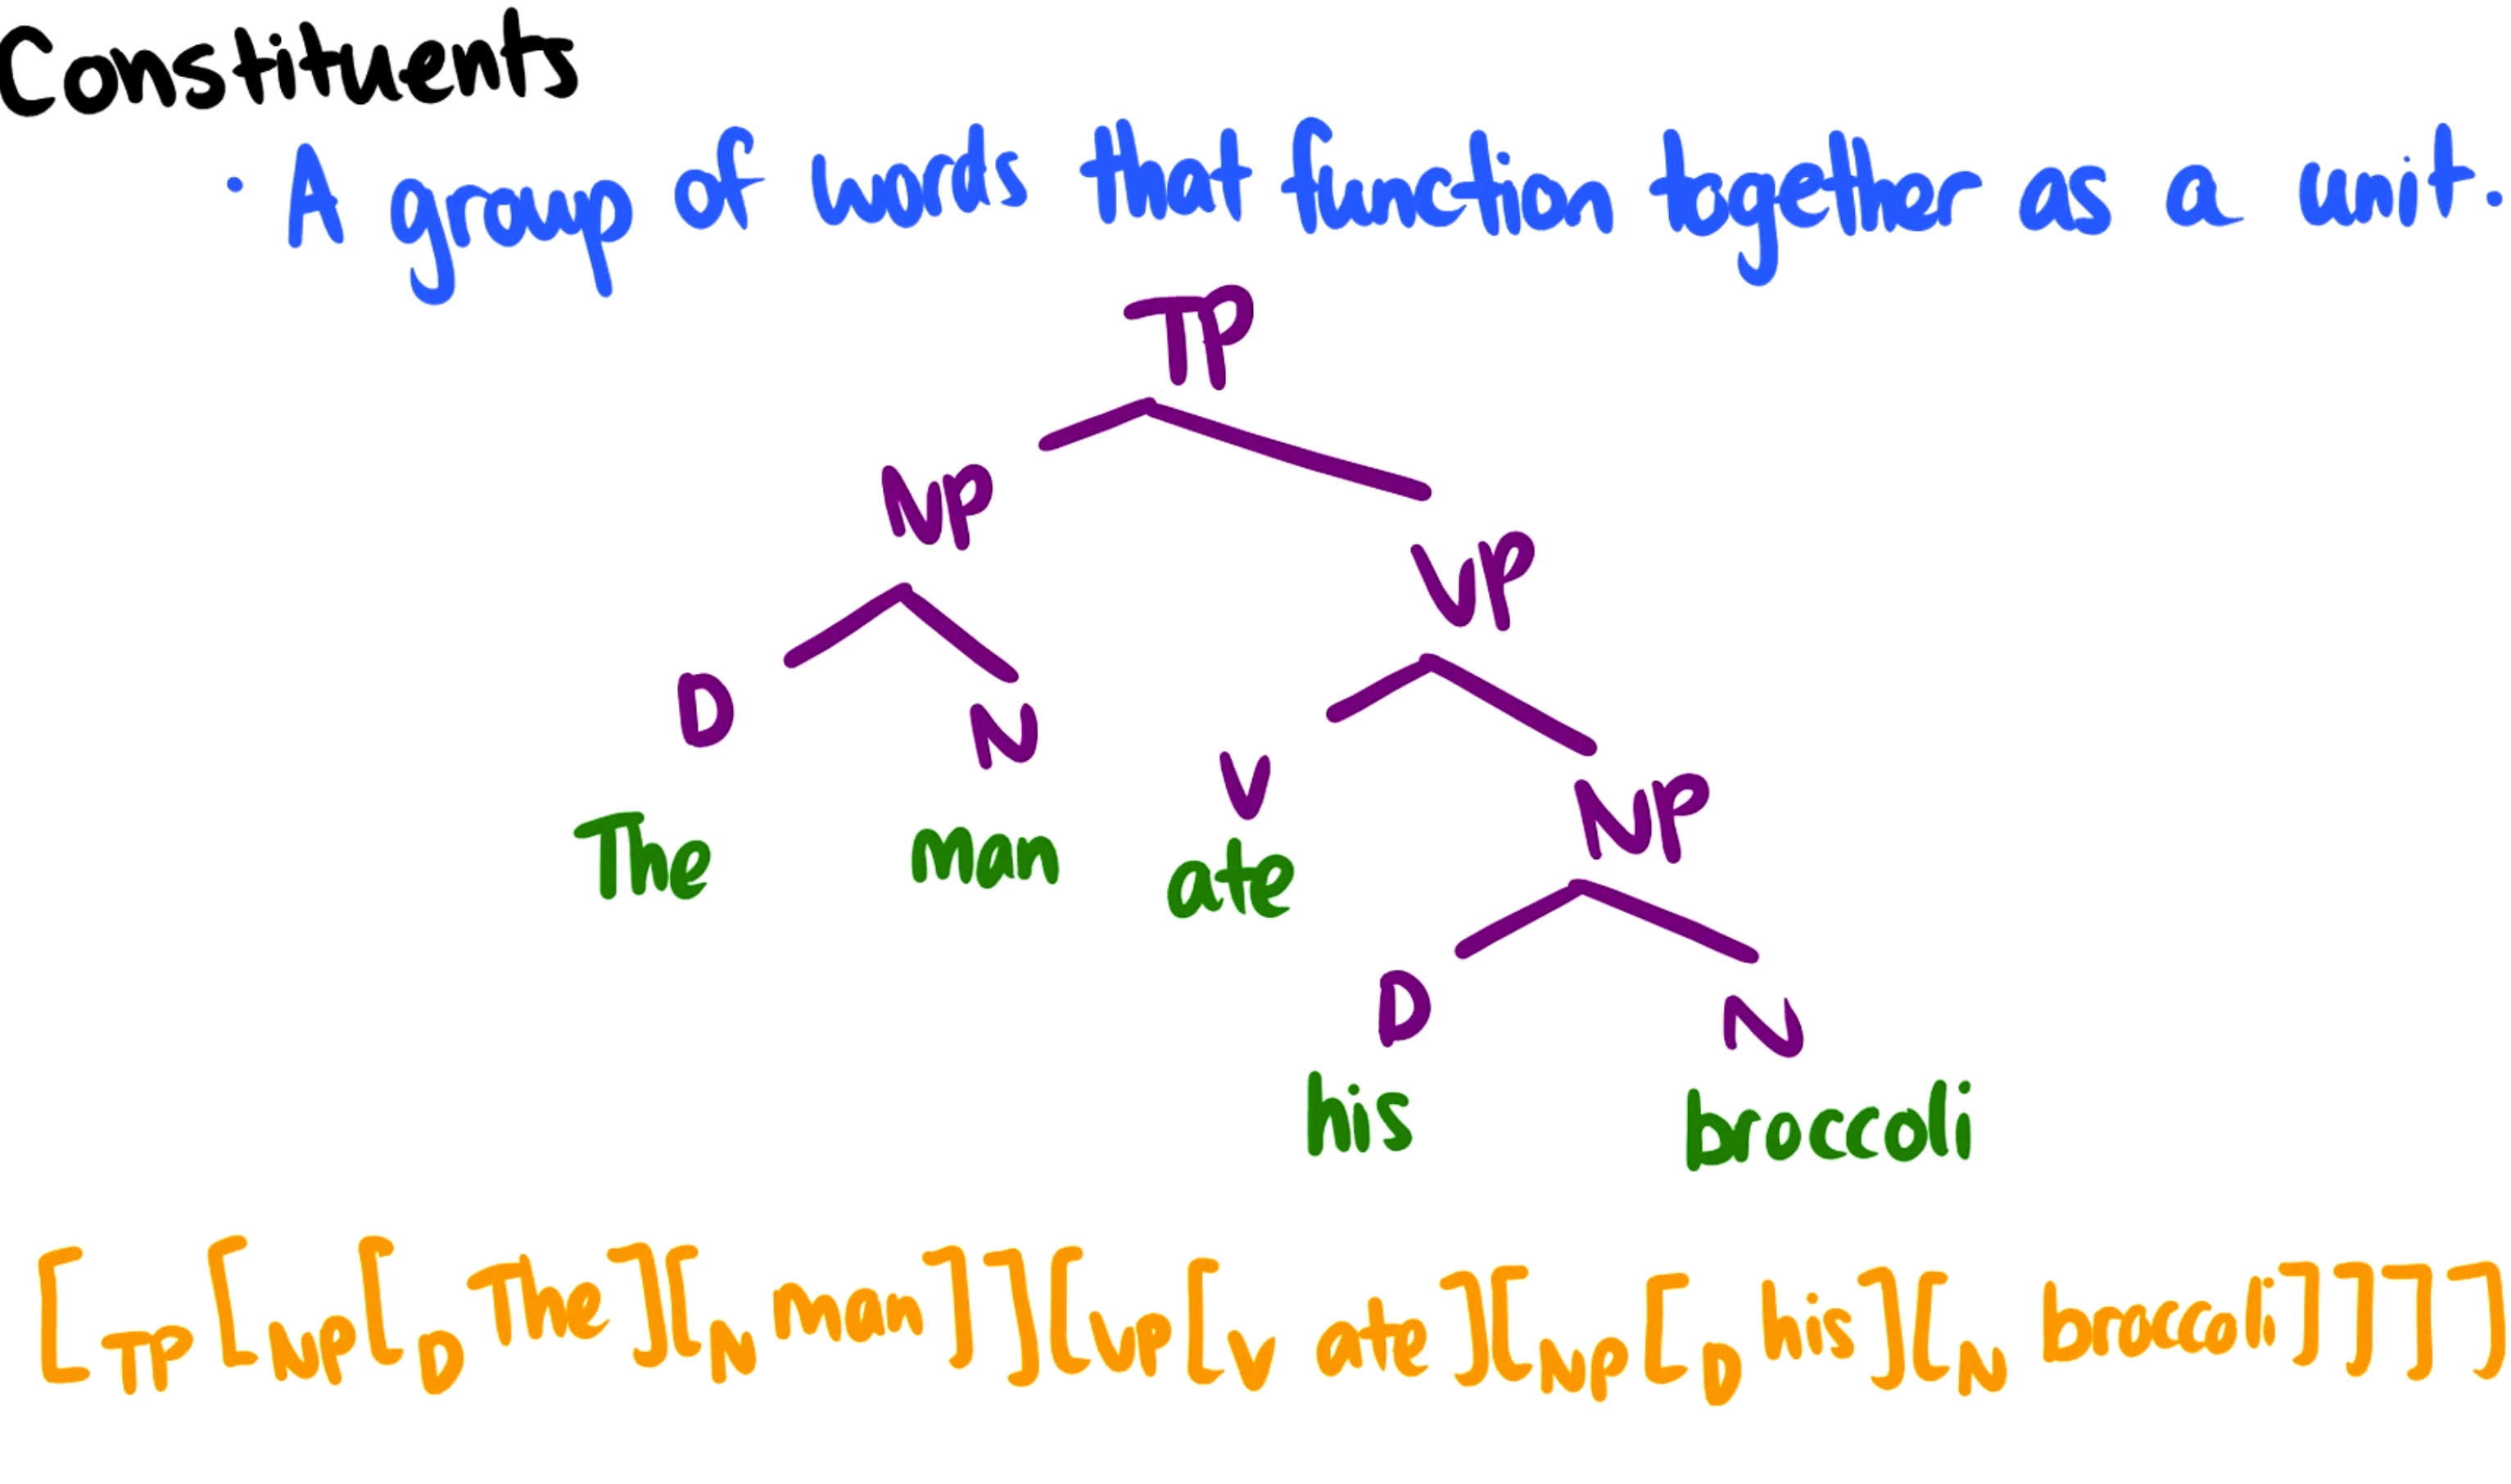 Constituents
· A group of words that function together as a unit.
TP
NP
VP
D N
V NP
The man ate
D N
his broccoli
[TP[NP[D The][N man]][VP[V ate][NP[D his][N broccoli]]]]